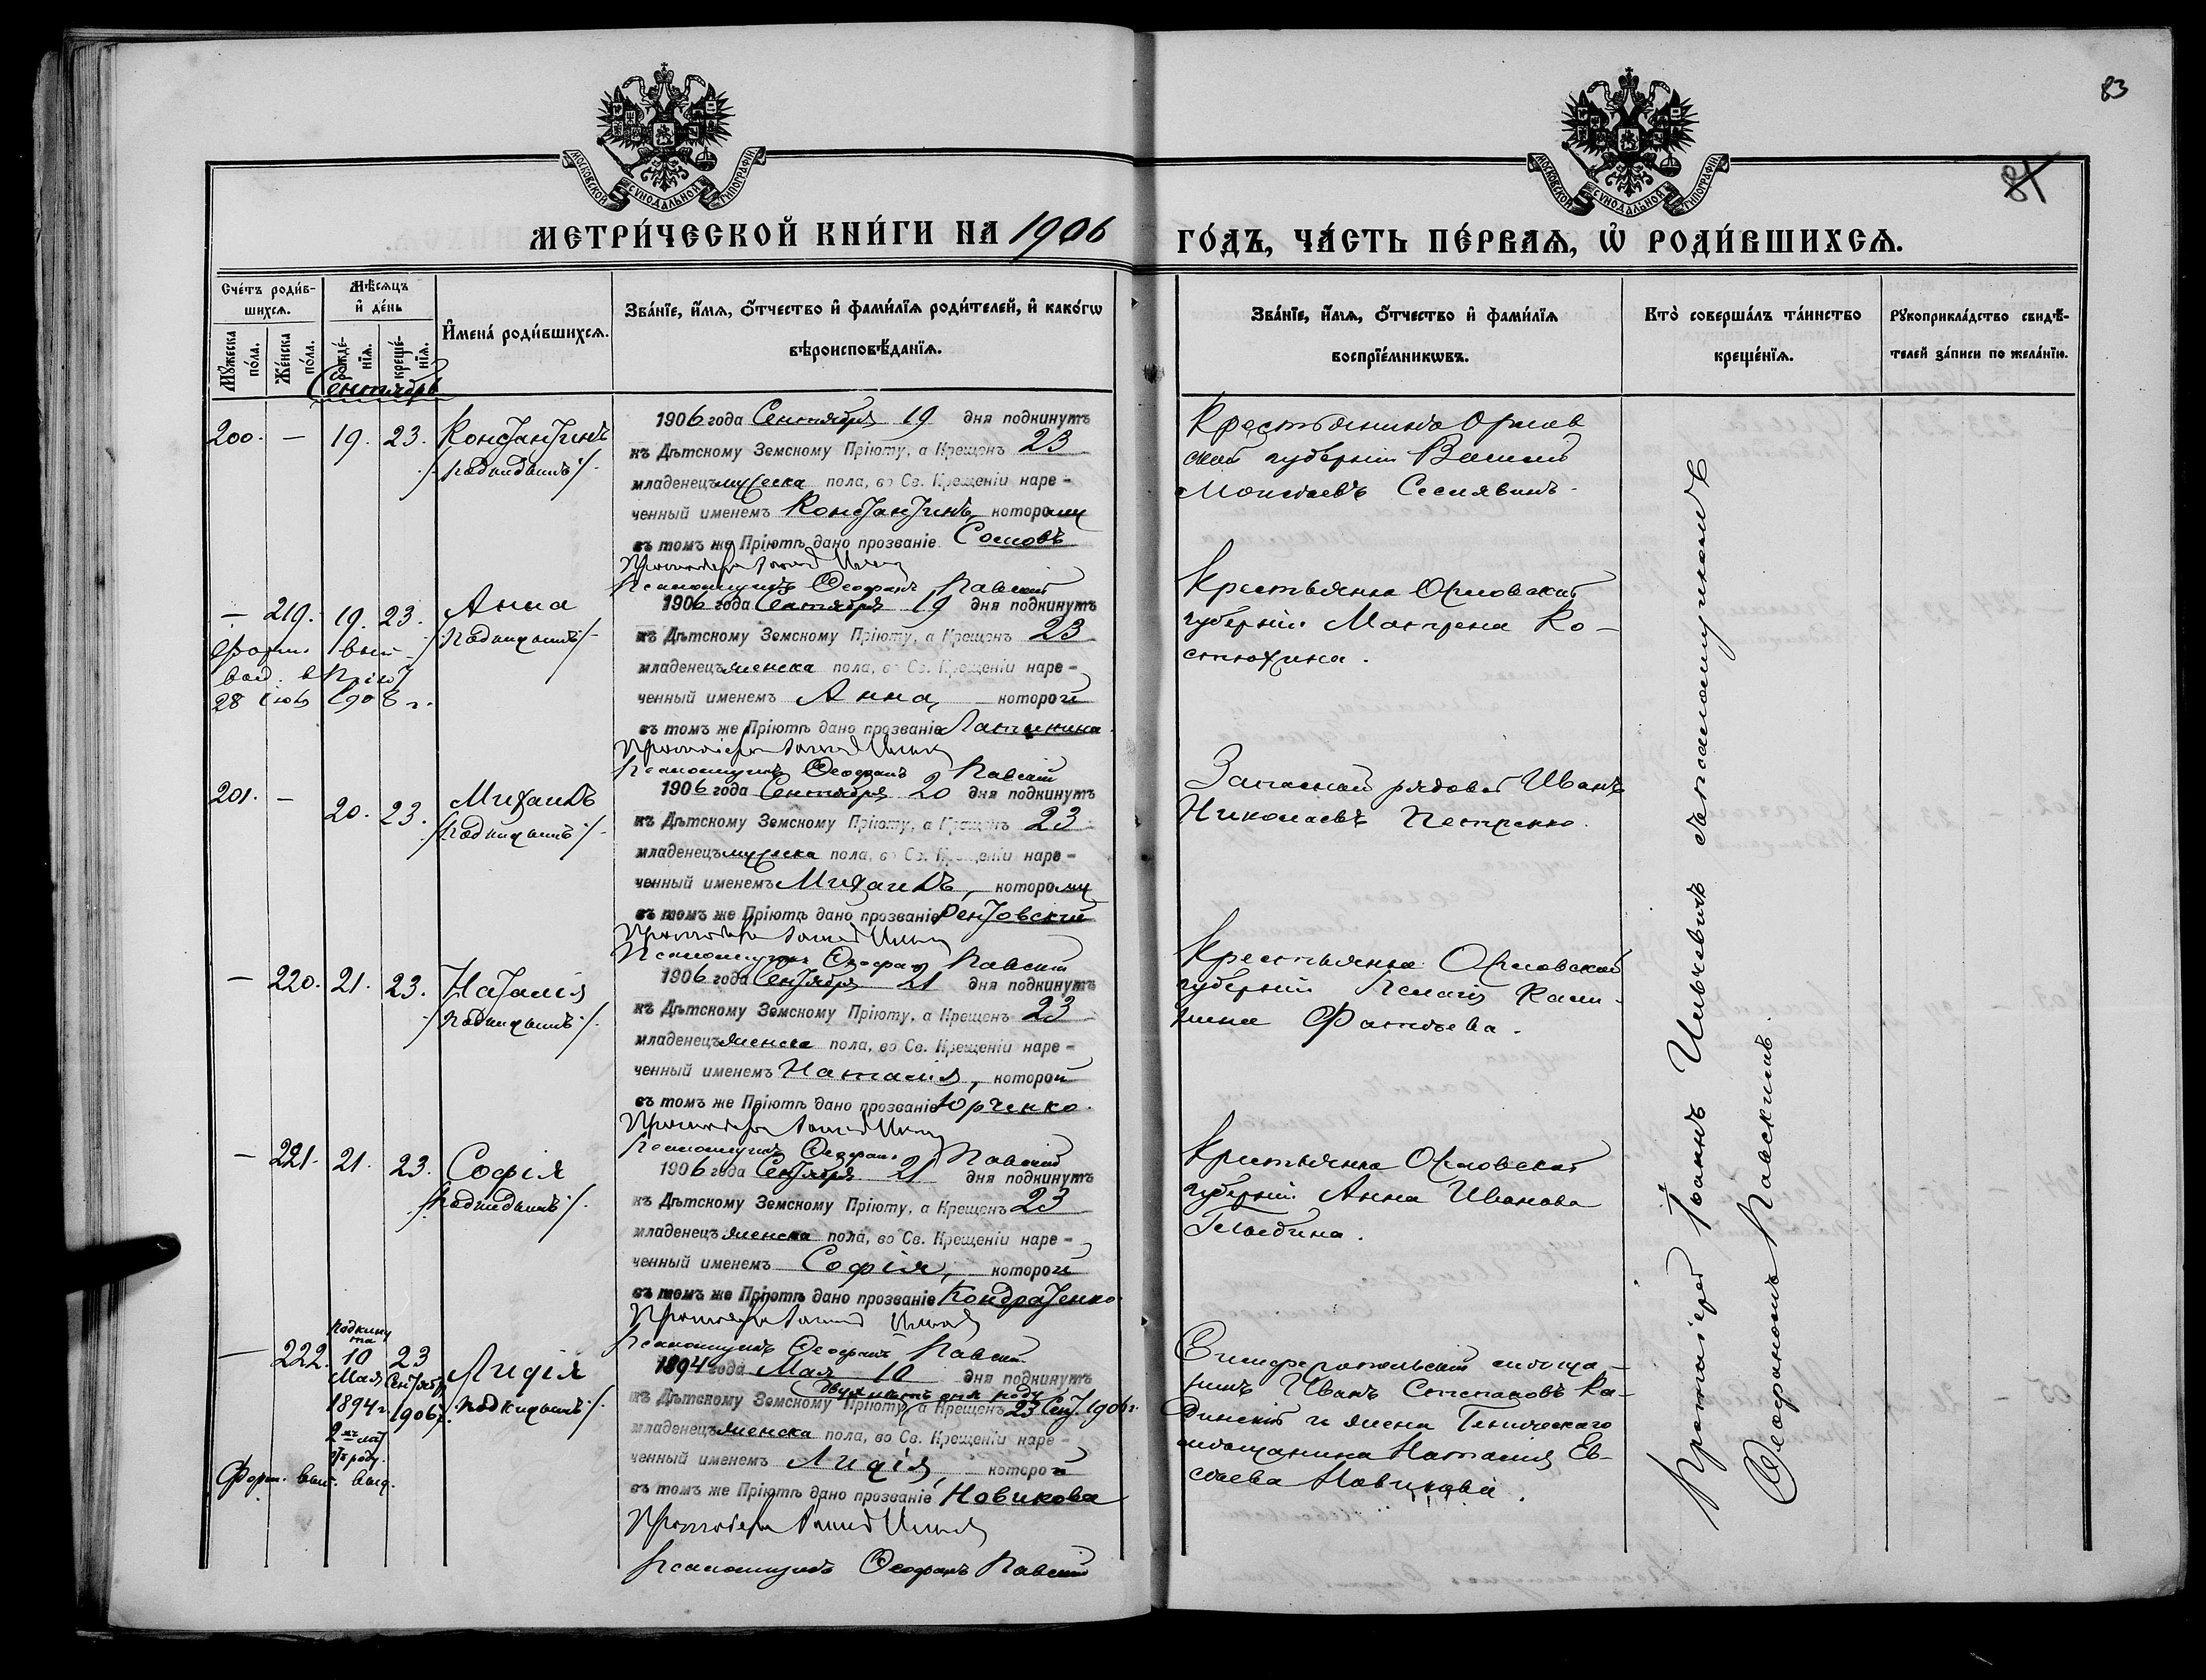 83
81
МОСКОВСКОЙ СѴНОДАЛЬНОЙ ТИПОГРАФІИ
МОСКОВСКОЙ СѴНОДАЛЬНОЙ ТИПОГРАФІИ
МЕТРИ́ЧЕСКОЙ КНИ́ГИ НА 1906
ГО́ДЪ, ЧА́СТЬ ПЕ́РВАѦ, Ѡ҆ РОДИ́ВШИХСѦ.
Сче́тъ роди́в-
шихсѧ.
Мꙋ́жеска
по́ла.
Же́нска
по́ла.
Мѣ́сѧцъ
и҆ де́нь
рожде́-
нїѧ.
креще́-
нїѧ.
И҆мена́ роди́вшихсѧ.
Зва́нїе, и҆́мѧ, ѻ҆́тчество и҆ фами́лїѧ роди́телей, и҆ како́гѡ
вѣроисповѣ́данїѧ.
Зва́нїе, и҆́мѧ, ѻ҆́тчество и҆ фами́лїѧ
воспрїе́мникѡвъ.
Кто̀ соверша́лъ та́инство
креще́нїѧ.
Рꙋкоприкла́дство свидѣ́-
телей за́писи по жела́нїю.
Сентябрь
200. — 19. 23. Константинъ
/подкидышъ/.
1906 года Сентября 19 дня подкинутъ
къ Дѣтскому Земскому Пріюту, а Крещенъ 23
младенецъ мужеска пола, во Св. Крещеніи наре-
ченный именемъ Константинъ, которому
въ томъ же Пріютѣ дано прозваніе Сомовъ
Протоіерей Іоаннъ
Псаломщикъ Ѳеофанъ Павскій
Крестьянинъ Орлов
ской губерніи Василій
Моисеевъ Селявинъ.
— 219. 19. 23. Анна
/Подкидышъ/
28 1908 г.
1906 года Сентября 19 дня подкинутъ
къ Дѣтскому Земскому Пріюту, а Крещенъ 23
младенецъ женска пола, во Св. Крещеніи наре-
ченный именемъ Анна, которой
въ томъ же Пріютѣ дано прозваніе Лапчикина.
Протоіерей Іоаннъ
Псаломщикъ Ѳеофанъ Павскій
Крестьянка Орловской
губерніи Матрена Ко-
стюхина.
201. — 20. 23. Михаилъ
/Подкидышъ/.
1906 года Сентября 20 дня подкинутъ
къ Дѣтскому Земскому Пріюту, а Крещенъ 23
младенецъ мужеска пола, во Св. Крещеніи наре-
ченный именемъ Михаилъ, которому
въ томъ же Пріютѣ дано прозваніе Рентовскій
Протоіерей Іоаннъ
Псаломщикъ Ѳеофанъ Павскій
Запасной рядовой Иванъ
Николаевъ Петренко.
— 220. 21. 23. Наталія
/Подкидышъ/.
1906 года Сентября 21 дня подкинутъ
къ Дѣтскому Земскому Пріюту, а Крещенъ 23
младенецъ женска пола, во Св. Крещеніи наре-
ченный именемъ Наталія, которой
въ томъ же Пріютѣ дано прозваніе Юрченко.
Протоіерей Іоаннъ
Псаломщикъ Ѳеофанъ Павскій
Крестьянка Орловской
губерніи Пелагія
Фатѣева.
— 221. 21. 23. Софія
/Подкидышъ/.
1906 года Сентября 21 дня подкинутъ
къ Дѣтскому Земскому Пріюту, а Крещенъ 23
младенецъ женска пола, во Св. Крещеніи наре-
ченный именемъ Софія, которой
въ томъ же Пріютѣ дано прозваніе Кондратенко.
Протоіерей Іоаннъ
Псаломщикъ Ѳеофанъ Павскій
Крестьянка Орловской
губерніи Анна Иванова
— 222. Подкину
та
10 23 Лидія
Мая Сентябр.
1894 г. 1906 г. /Подкидышъ/.
2-хъ лѣт
отъ роду.
1894 года Мая 10 дня подкинутъ
двухъ лѣтъ отъ роду
къ Дѣтскому Земскому Пріюту, а Крещенъ 23 Сент. 1906 г.
младенецъ женска пола, во Св. Крещеніи наре-
ченный именемъ Лидія, которой
въ томъ же Пріютѣ дано прозваніе Новикова
Протоіерей Іоаннъ
Псаломщикъ Ѳеофанъ Павскій
Симферопольскій мѣща-
нинъ Иванъ Степановъ Ка-
динскій и жена Геническаго
мѣщанина Наталія Ев-
сѣева Новикова.
Протоіерей Іоаннъ Ильчевичъ съ псаломщикомъ
Ѳеофаномъ Павскимъ.